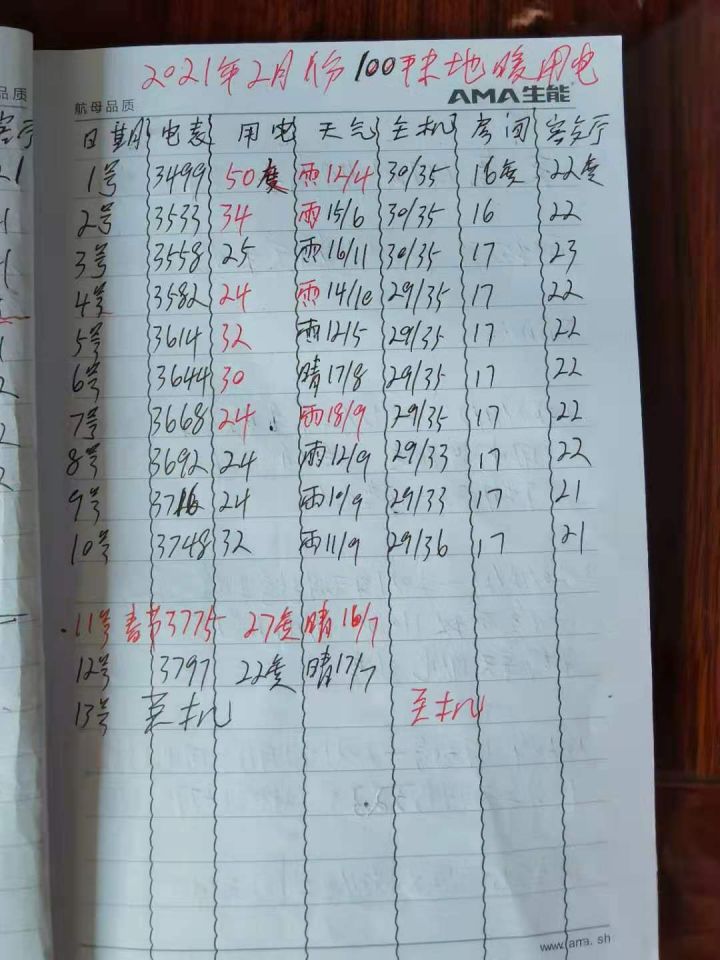 2021年2月份100平米地暖用电
品质
航母品质
AMA生能
客厅
日期 电表 用电 天气 主机 房间 客厅
1号 3499 50度 雨12/4 30/35 16度 22度
2号 3533 34 雨15/6 30/35 16 22
3号 3558 25 雨16/11 30/35 17 23
4号 3582 24 雨14/10 29/35 17 22
5号 3614 32 雨12/5 29/35 17 22
6号 3644 30 晴17/8 29/35 17 22
7号 3668 24 雨18/9 29/35 17 22
8号 3692 24 雨12/9 29/33 17 22
9号 3716 24 雨10/9 29/33 17 21
10号 3748 32 雨11/9 29/36 17 21
11号 春节3775 27度 晴16/7
12号 3797 22度 晴17/7
13号 关机 主机
www.ama.sh